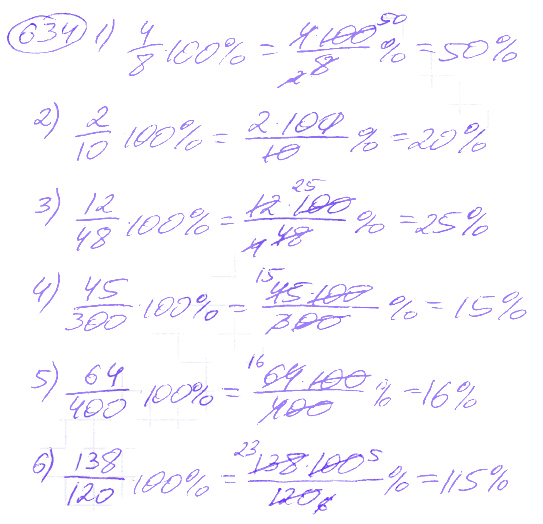 634 1) 4/8 · 100% = 4·100/8 % = 50%
2) 2/10 100% = 2·100/10 % = 20%
3) 12/48 · 100% = 12·100/48 % = 25%
4) 45/300 · 100% = 45·100/300 % = 15%
5) 64/400 · 100% = 64·100/400 % = 16%
6) 138/120 · 100% = 138·100/120 % = 115%